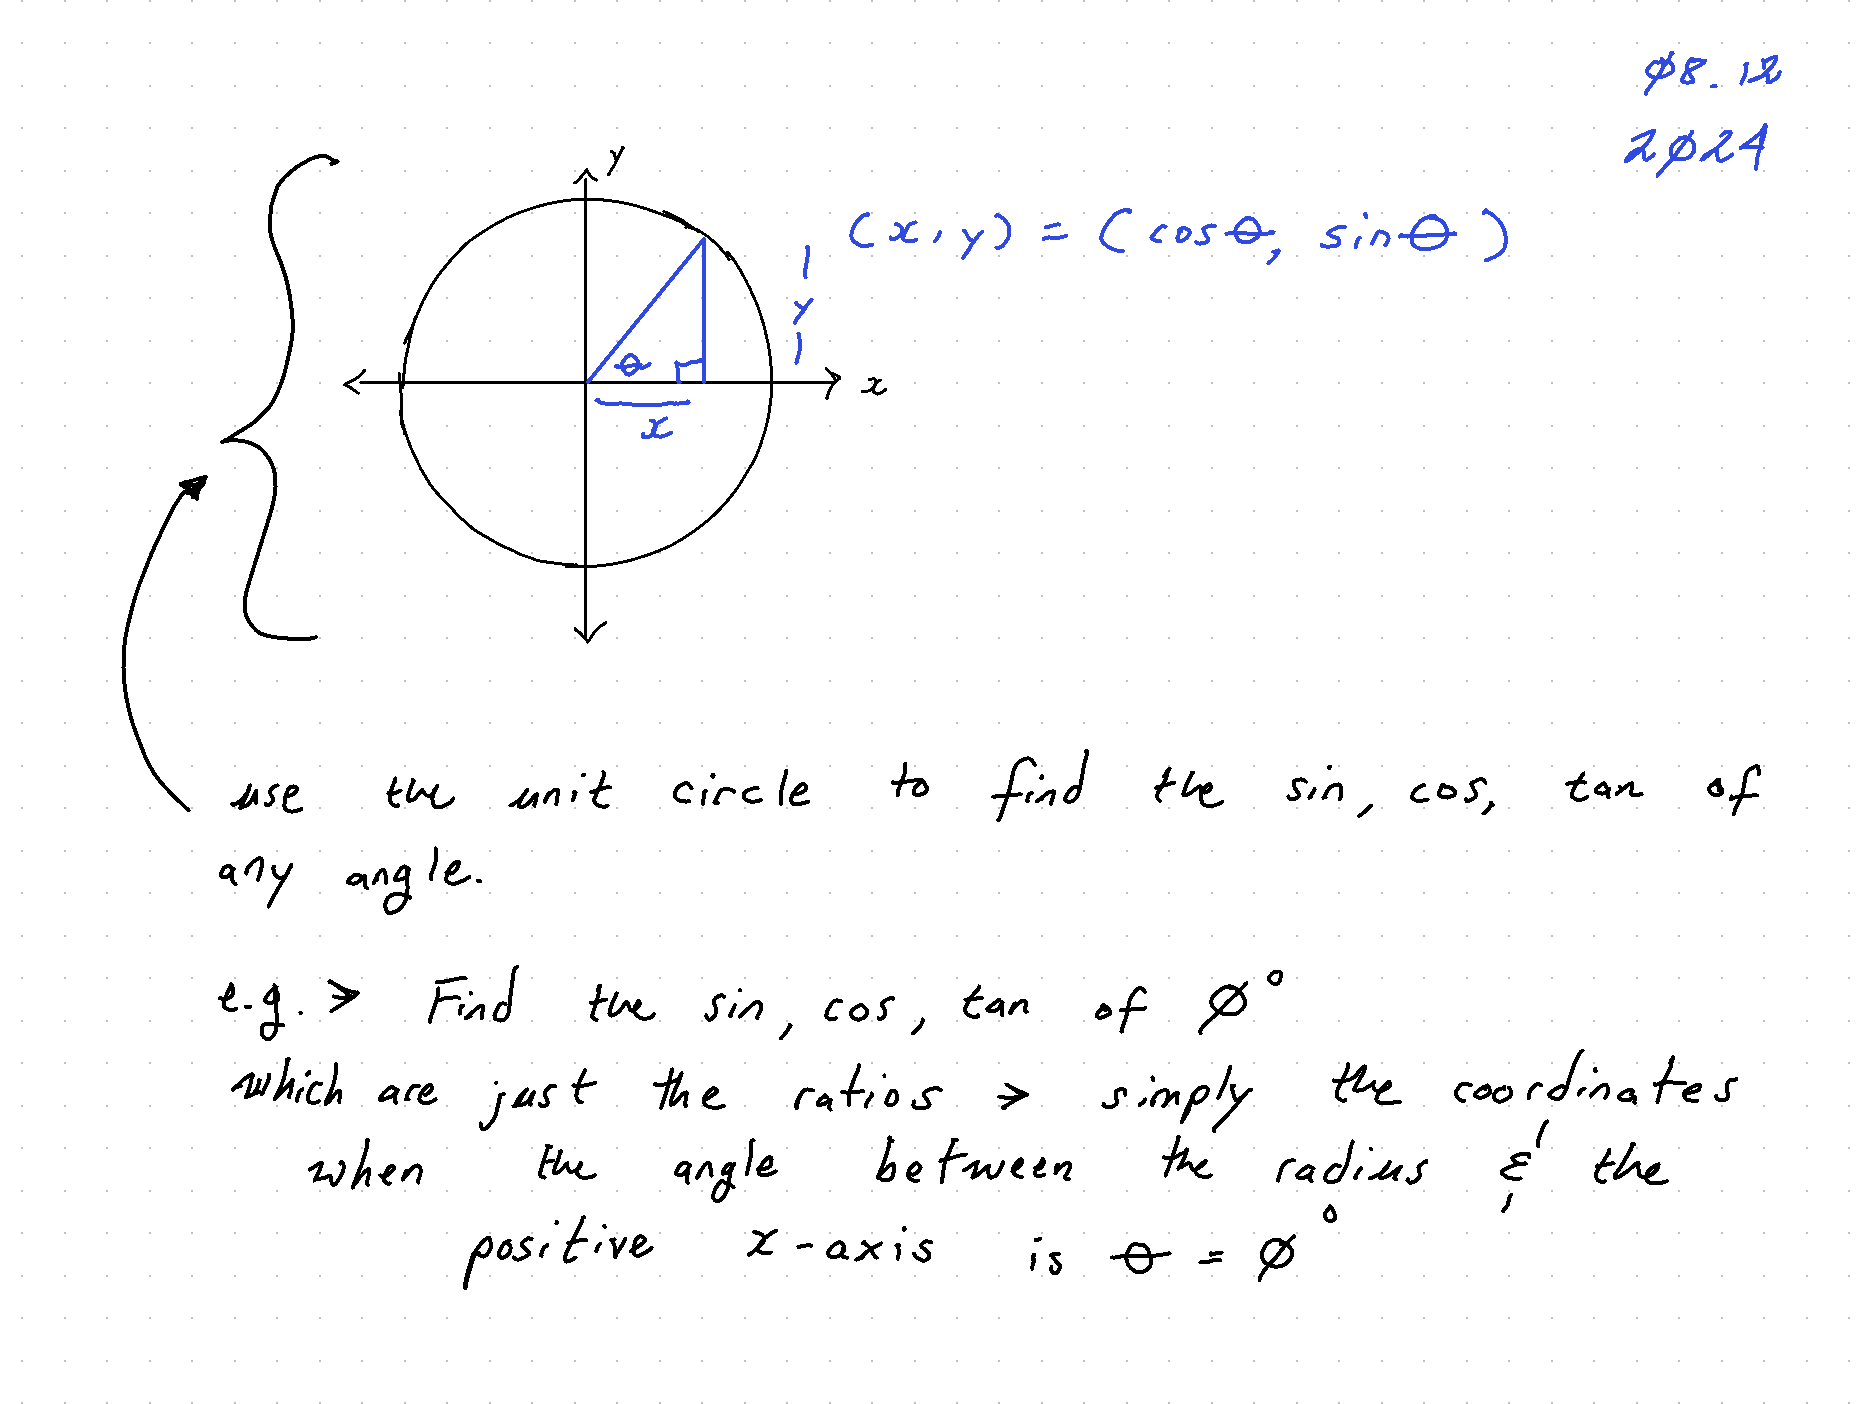 ø8.12
2ø24
y
(x, y) = (cosθ, sinθ)
y
θ
x
x
use the unit circle to find the sin, cos, tan of
any angle.
e.g. → Find the sin, cos, tan of ø°
which are just the ratios → simply the coordinates
when the angle between the radius & the
positive x-axis is θ = ø°